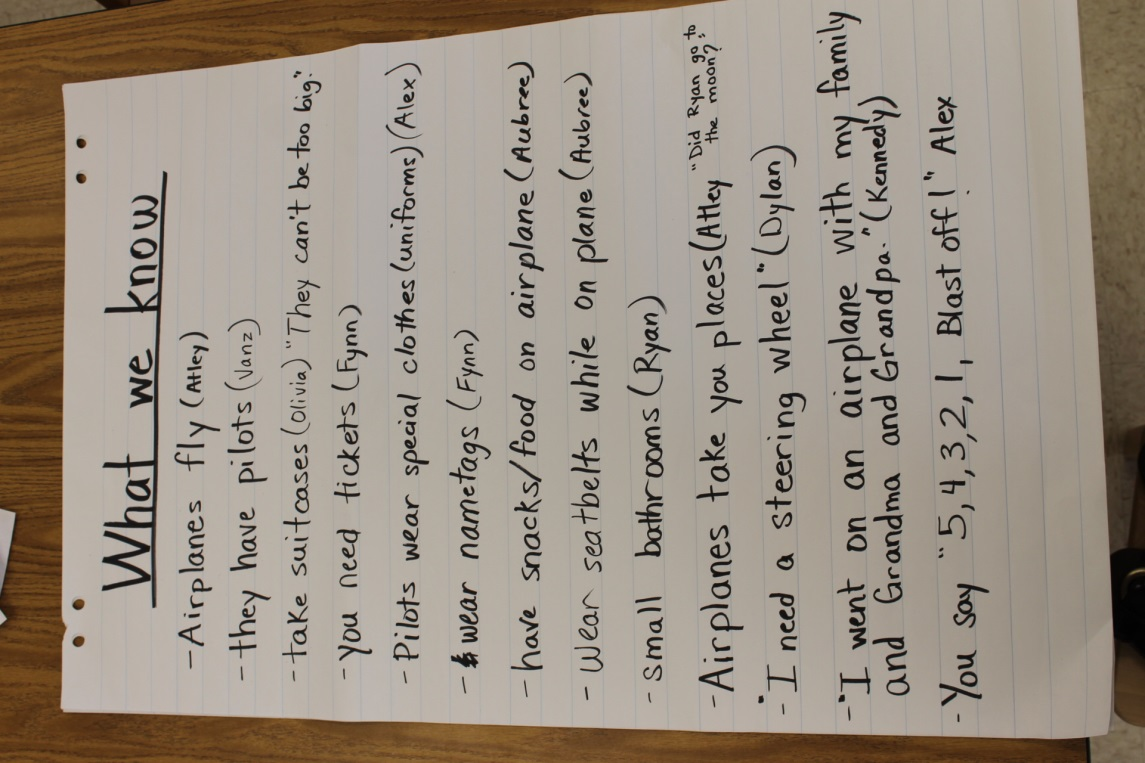 What we know
- Airplanes fly (Atley)
- they have pilots (Vanz)
- take suitcases (Olivia) "They can't be too big."
- you need tickets (Fynn)
- Pilots wear special clothes (uniforms) (Alex)
- wear nametags (Fynn)
- have snacks/food on airplane (Aubree)
- Wear seatbelts while on plane (Aubree)
- small bathrooms (Ryan)
- Airplanes take you places (Atley "Did Ryan go to
the moon?":
- "I need a steering wheel" (Dylan)
- "I went on an airplane with my family
and Grandma and Grandpa." (Kennedy)
- You say "5, 4, 3, 2, 1, Blast off!" Alex